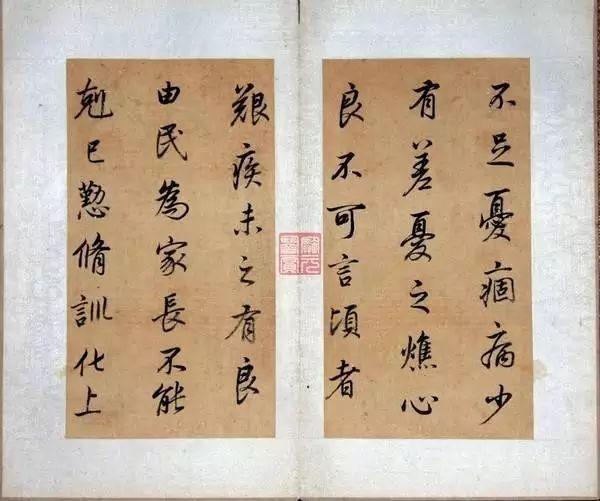 不足憂痼病少
有差憂之燋心
良不可言頃者
艱疾未之有良
由民為家長不能
剋已懃脩訓化上